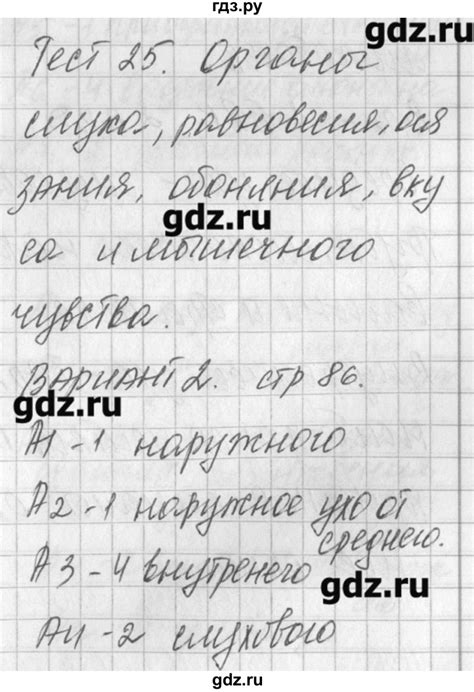 гдз.ру
gdz.ru
Тест 25. Органы
слуха, равновесия, ося
зания, обоняния, вку
gdz.ru
са и мышечного
чувства.
Вариант 2. стр 86.
gdz.ru
А1 - 1 наружного
А2 - 1 наружное ухо от
среднего.
А3 - 4 внутренего
gdz.ru
А4 - 2 слухового
гдз.ру